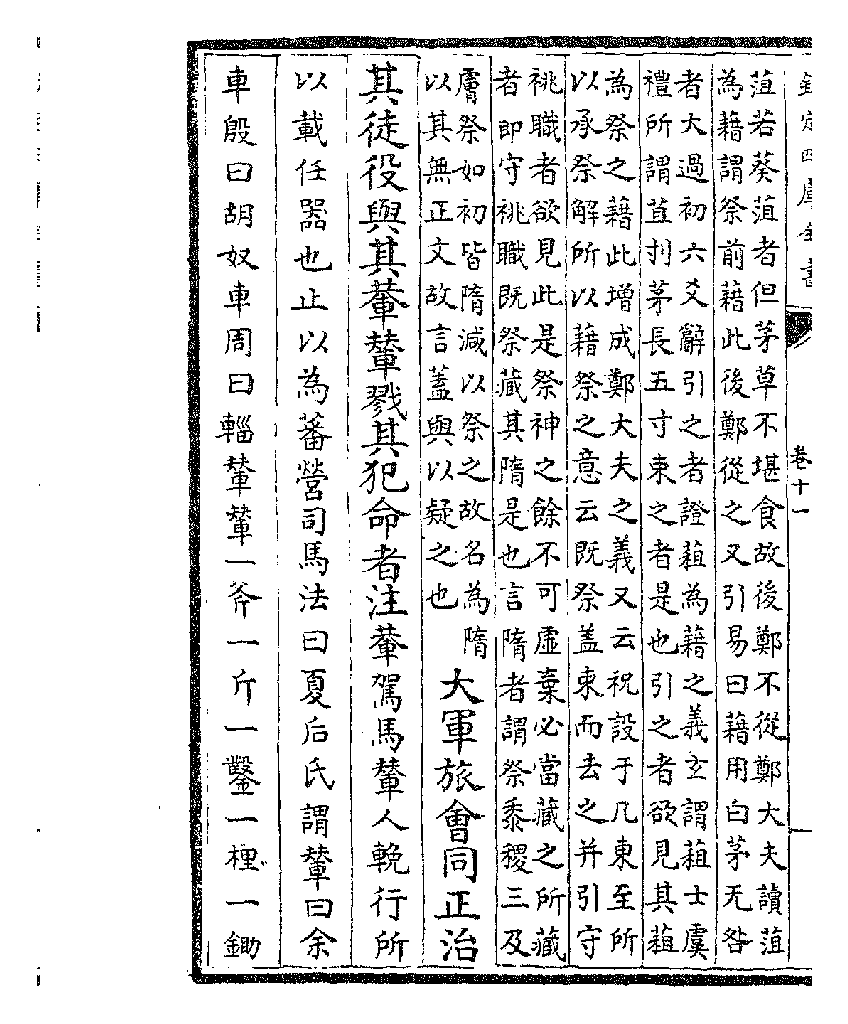 欽定四庫全書
卷十一
菹若葵菹者但茅草不堪食故後鄭不從鄭大夫讀菹
為藉謂祭前藉此後鄭從之又引易曰藉用白茅无咎
者大過初六爻辭引之者證葅為藉之義玄謂葅士虞
禮所謂苴刌茅長五寸束之者是也引之者欲見其葅
為祭之藉此增成鄭大夫之義又云祝設于几東至所
以承祭解所以藉祭之意云既祭盖束而去之并引守
祧職者欲見此是祭神之餘不可虛棄必當藏之所藏
者即守祧職既祭藏其隋是也言隋者謂祭黍稷三及
膚祭如初皆隋減以祭之故名為隋
以其無正文故言蓋與以疑之也
大軍旅會同正治
其徒役與其輂輦戮其犯命者注輂駕馬輦人輓行所
以載任器也止以為蕃營司馬法曰夏后氏謂輦曰余
車殷曰胡奴車周曰輜輦輦一斧一斤一鑿一梩一鋤